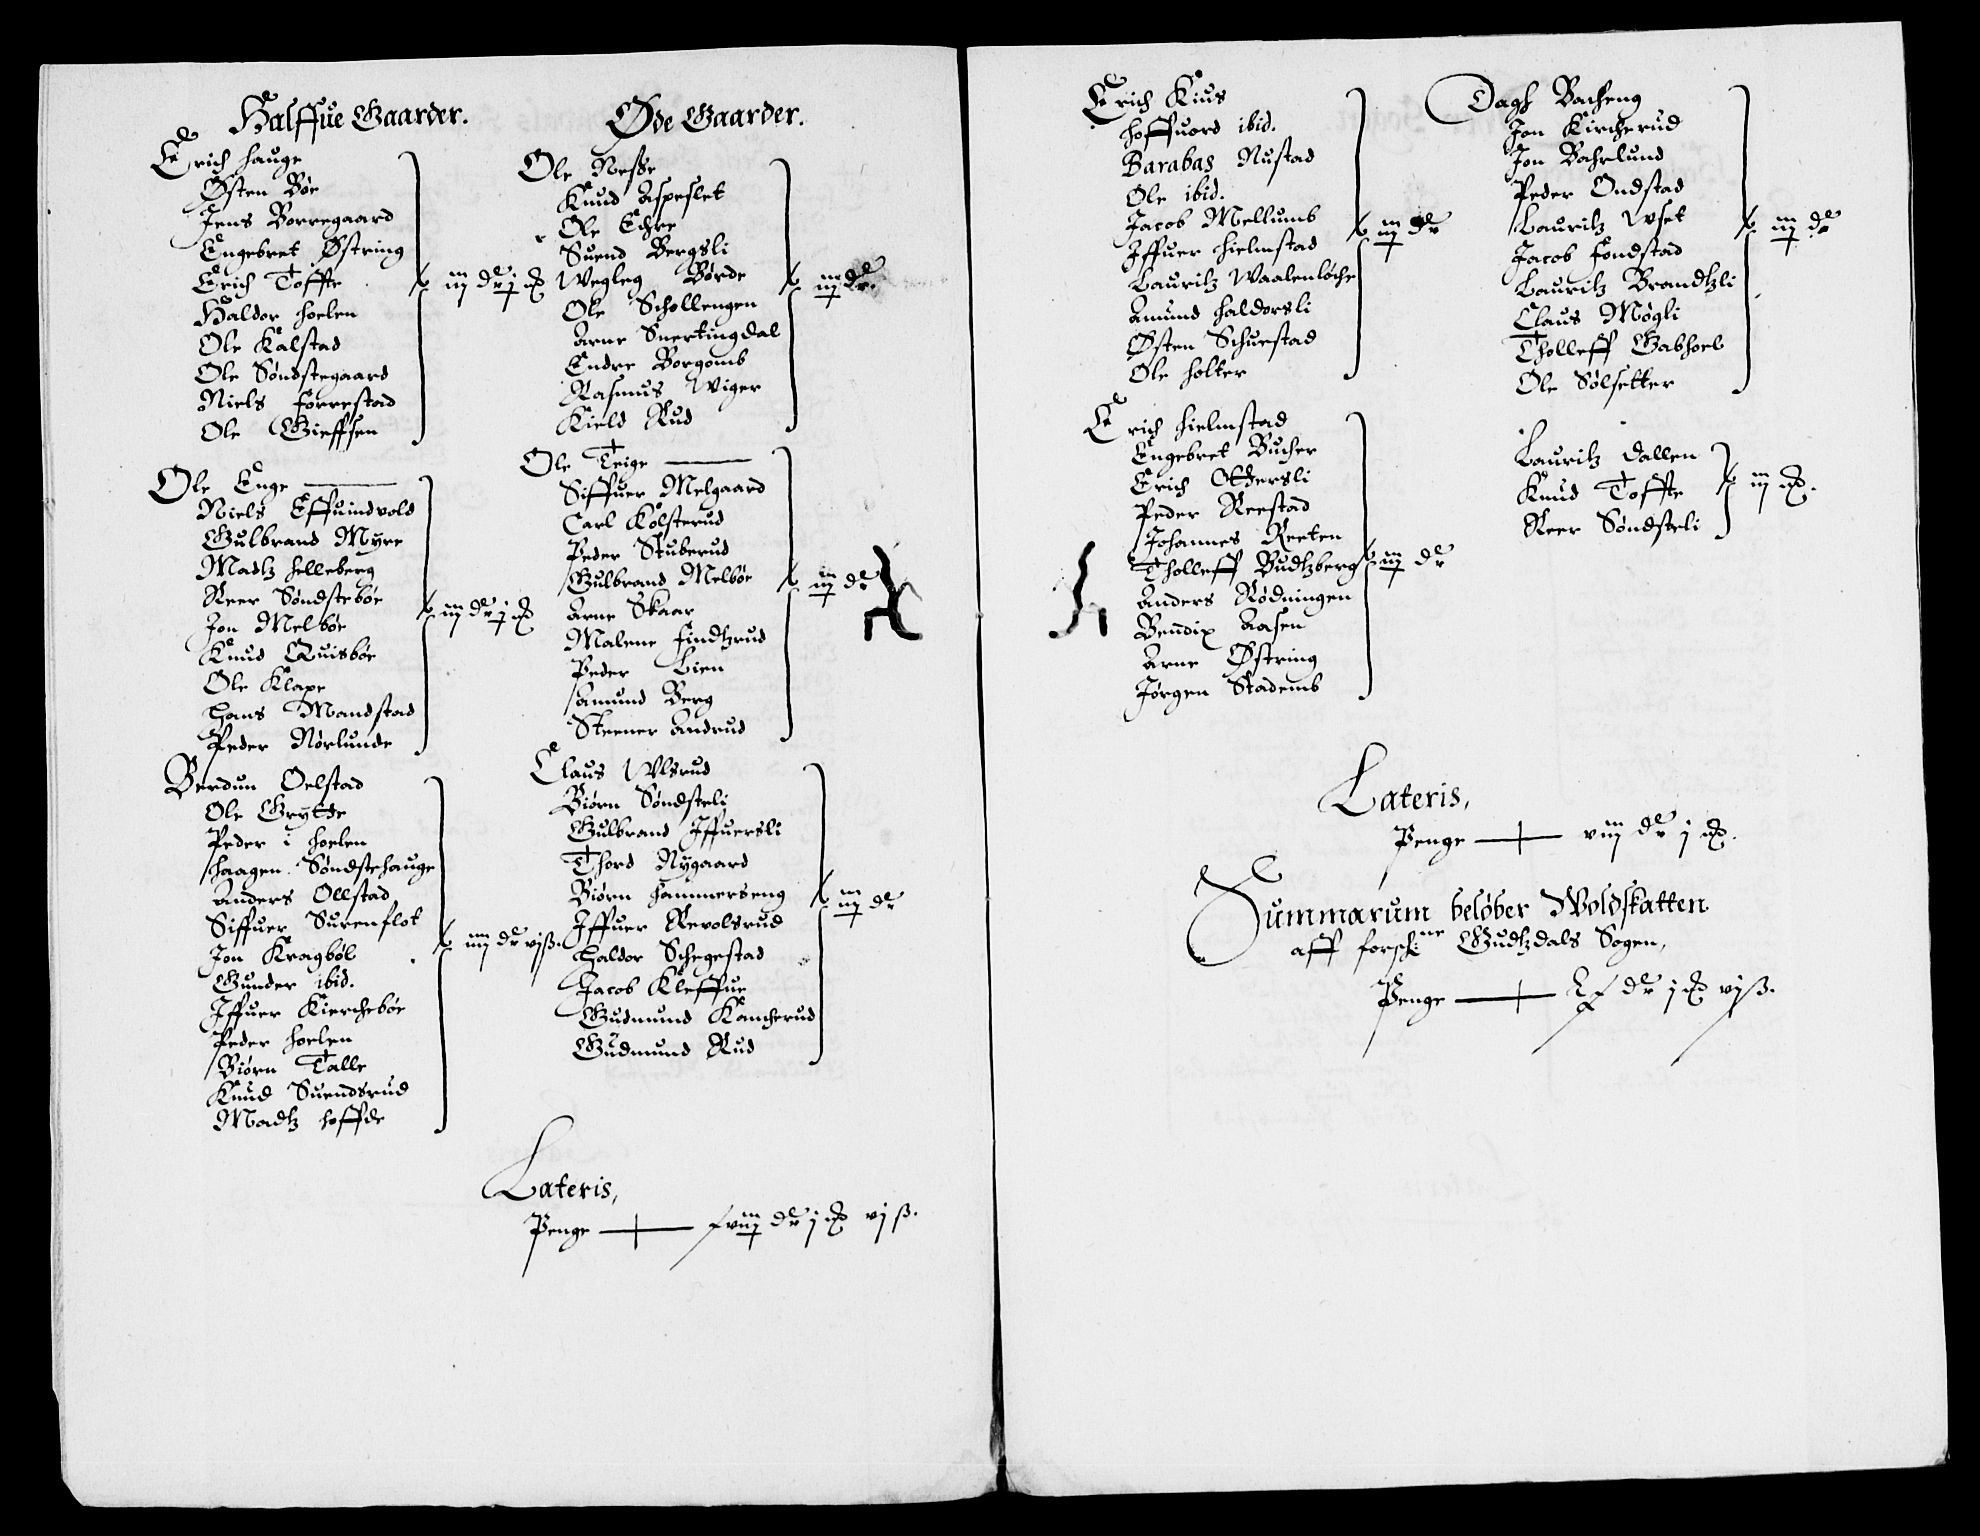 Halffue Gaarder.
Erich Hauge
Østen Bøe
Jens Borregaard
Engebret Østring
Erich Toffte
Haldor Hoelen
Ole Kalstad
Ole Søndstegaard
Niels Forrestad
Ole Gieffsen
iiij dr j
Ole Enge
Niels Effuindvold
Gulbrand Myre
Madtz Helleberg
Reer Søndstebøe
Jon Melbøe
Knud Quisbøe
Ole Klape
Hans Mandstad
Peder Nørlunde
iiij dr j
Berdun Oelstad
Ole Grytte
Peder i Hoelen
Haagen Søndstehauge
Anders Ollstad
Siffuer Surenflot
Jon Kragbøl
Gunder ibid.
Iffuer Kierchebøe
Peder Hoelen
Biørn Talle
Knud Suendsrud
Madtz Hoffde
iiij dr vj ß.
Øde Gaarder.
Ole Nesse
Knud Aspeslet
Ole Echre
Suend Bergsli
Wegleg Børde
Ole Schollengen
Arne Snertingdal
Endre Borgomb
Rasmus Wiger
Kield Rud
iij dr.
Ole Teige
Siffuer Melgaard
Carl Kolsterud
Peder Stuberud
Gulbrand Melbøe
Arne Skaar
Malene Findtzrud
Peder Lien
Amund Berg
Steener Andrud
iij dr
Claus Wlsrud
Biørn Søndsteli
Gulbrand Iffuersli
Thord Nygaard
Biørn Hammerseng
Iffuer Revolsrud
Haldor Schegestad
Jacob Kleffue
Gudmund Kancherud
Gudmund Rud
iij dr
Lateris,
Penge
dr j vj ß.
Erich Kius
Hoffuord ibid.
Barabas Rustad
Ole ibid.
Jacob Mellumb
Iffuer Hielmstad
Lauritz Waalenløche
Amund Haldorsli
Østen Schuestad
Ole Holter
iij dr
Erich Hielmstad
Engebret Bucher
Erich Ottersli
Peder Reestad
Johannes Reeten
Tholleff Budtzberg
Anders Rødningen
Bendix Aasen
Arne Østring
Jørgen Stademb
iij dr
Dagh Bacheng
Jon Kircherud
Jon Bahrlund
Peder Ondstad
Lauritz Wset
Jacob Fondstad
Lauritz Brandtzli
Claus Møgli
Tholleff Gabhoel
Ole Sølsetter
iij dr
Lauritz Dallen
Knud Toffte
Reer Søndsteli
iij
Lateris,
Penge
dr j
Summarum beløber Woldskatten
aff forschne Gudtzdals Sogen,
Penge
dr j vj ß.